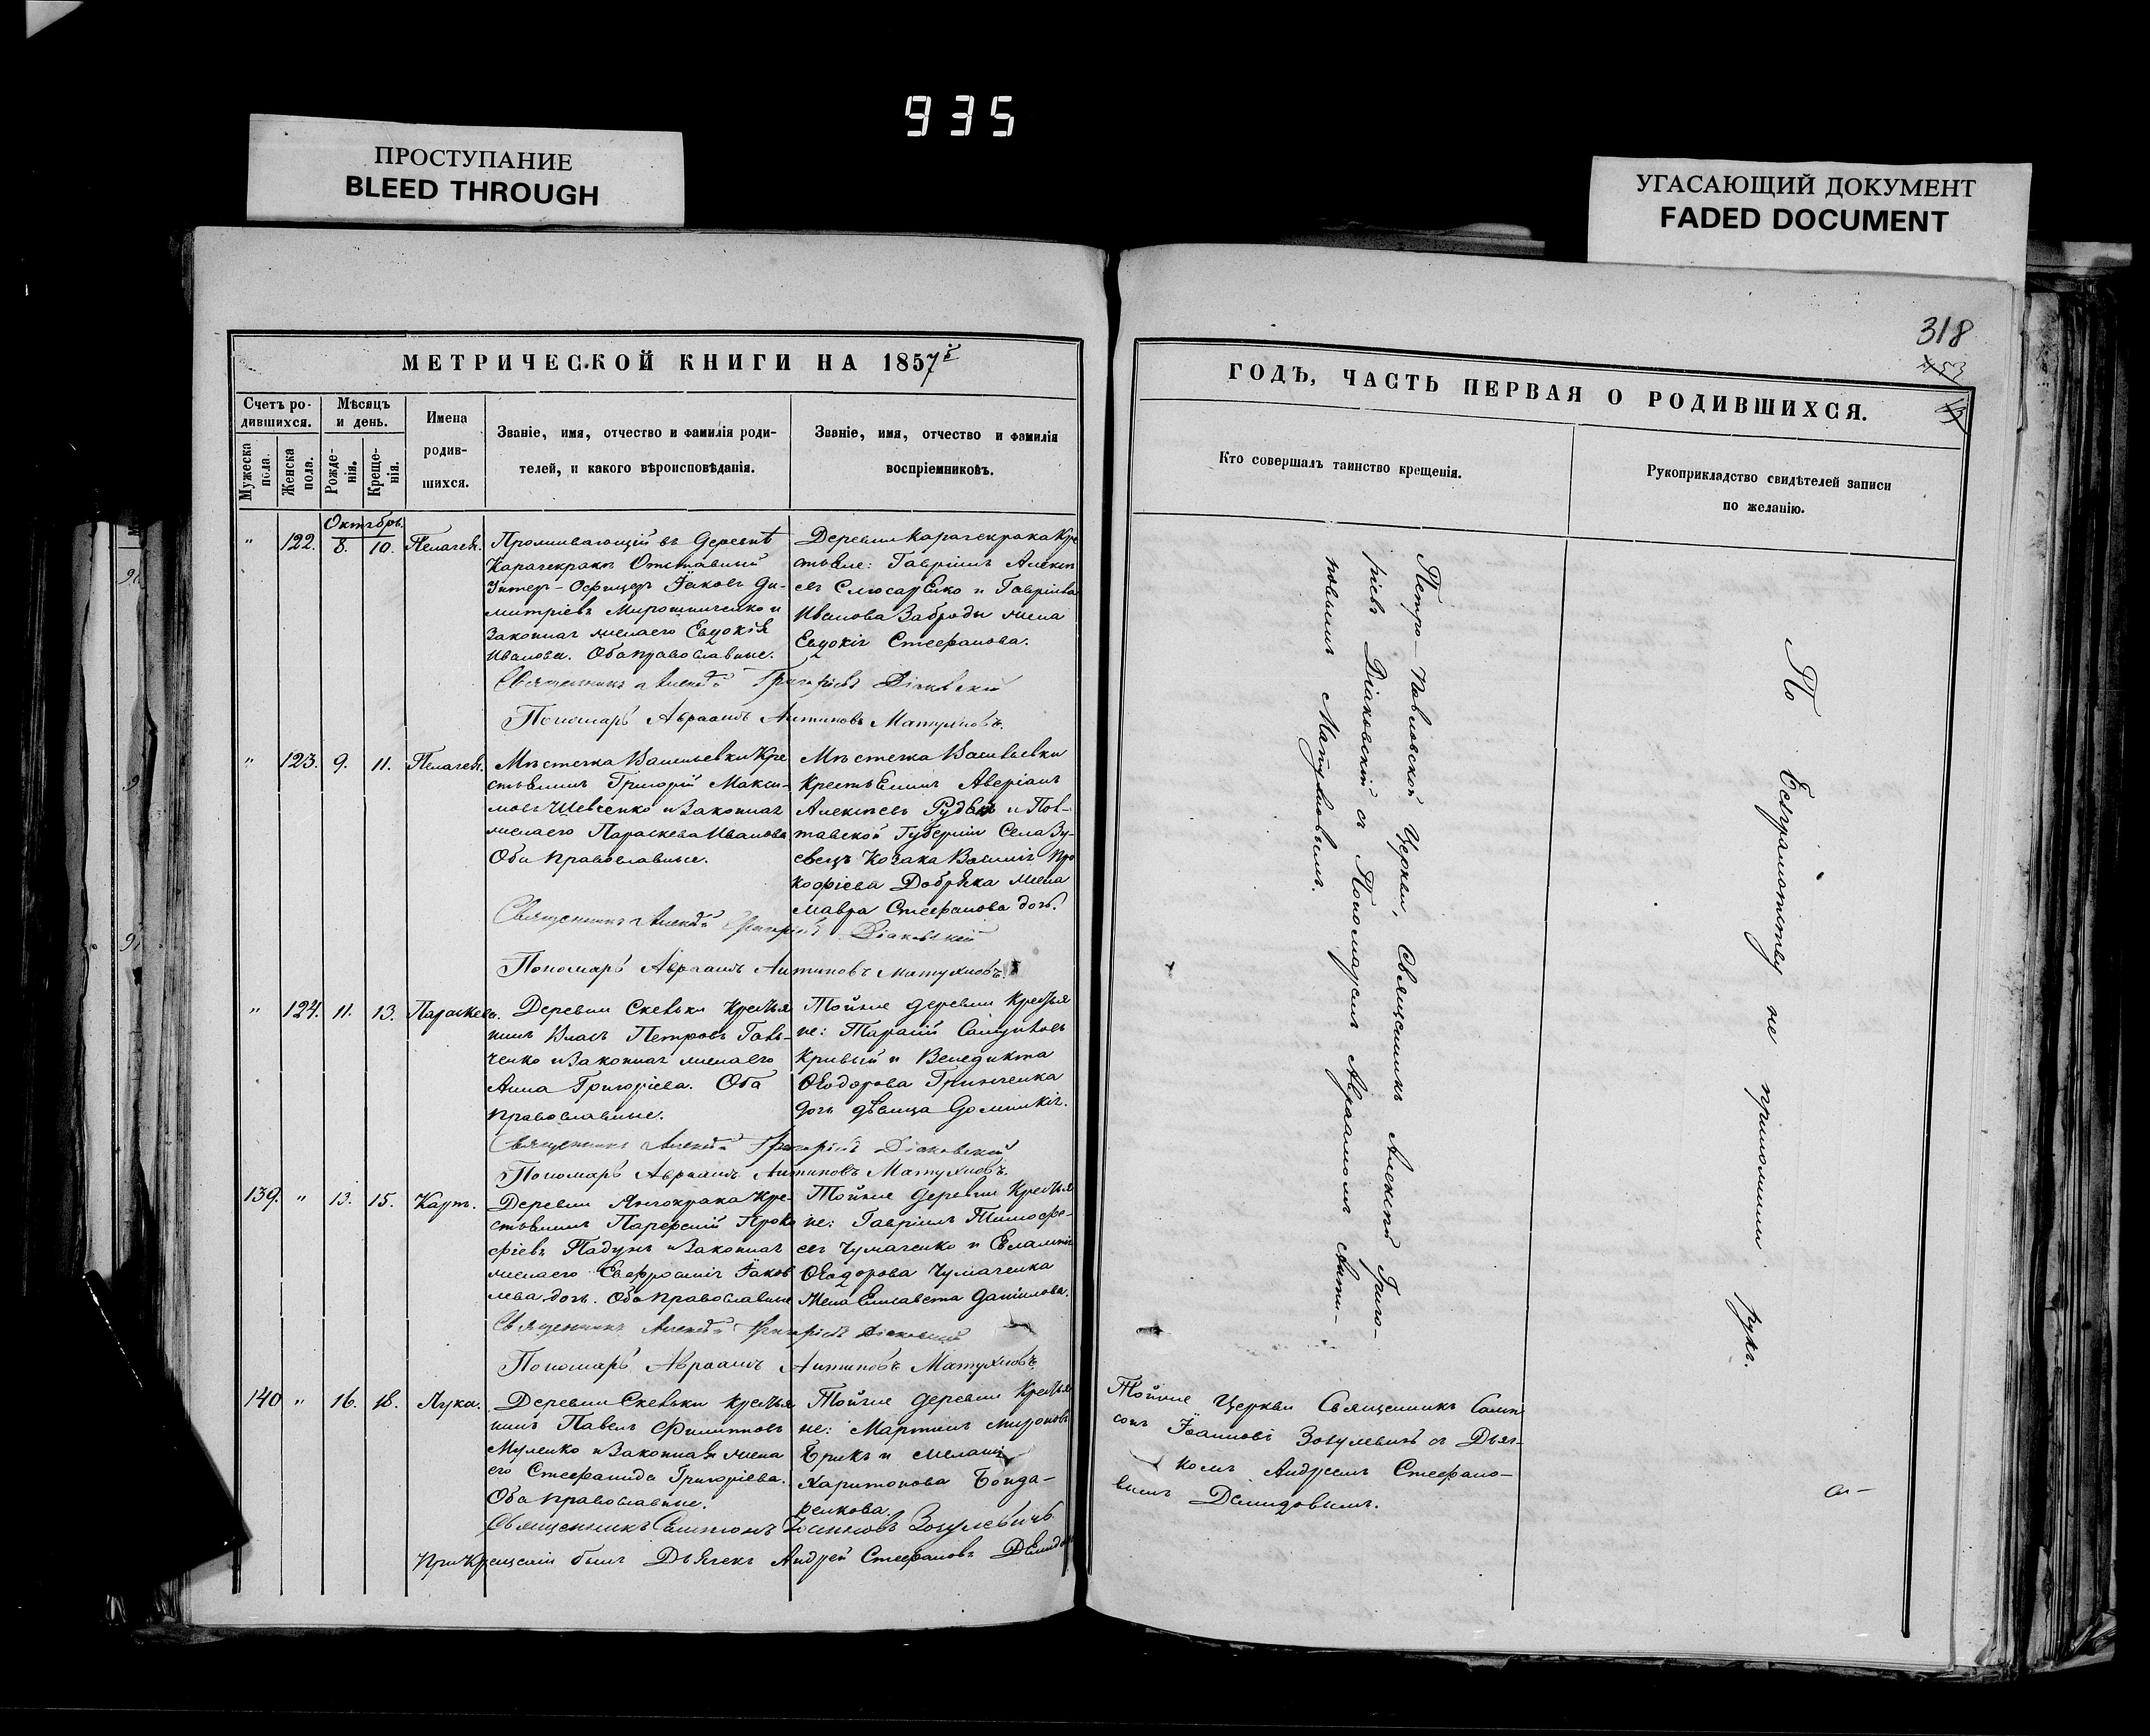 935
ПРОСТУПАНИЕ
BLEED THROUGH
УГАСАЮЩИЙ ДОКУМЕНТ
FADED DOCUMENT
318
МЕТРИЧЕСКОЙ КНИГИ НА 1857й
Счетъ ро-
дившихся.
Мужеска пола.
Женска пола.
Мѣсяцъ
и день.
Рожде-
нія.
Креще-
нія.
Имена
родив-
шихся.
Званіе, имя, отчество и фамилія роди-
телей, и какого вѣроисповѣданія.
Званіе, имя, отчество и фамилія
воспріемниковъ.
Октябрь.
" 122. 8. 10. Пелагея.
Проживающій въ Деревнѣ
Карачекракъ Отставный
Унтер-Офицеръ Іаковъ Ди-
митріевъ Мирошниченко и
Законная жена его Евдокія
Иванова. Оба православные.
Деревни Карачекрака Кре
стьяне: Гавріилъ Алексѣ
евъ Слюсаренко и Гавріила
Иванова Заброды жена
Евдокія Стефанова.
Священникъ Алексѣй Григоріевъ Діаковскій
Пономарь Авраамъ Антиповъ Матухновъ.
" 123. 9. 11. Пелагея.
Мѣстечка Васильевки Кре
стьянинъ Григорій Макси-
мовъ Шевченко и Законная
жена его Параскева Иванова
Оба православные.
Мѣстечка Васильевки
Крестьянинъ Аверіанъ
Алексѣевъ и Пол-
тавской Губерніи Села Зу-
евецъ Козака Василія Про
кофіева жена
Мавра Стефанова дочь.
Священникъ Алексѣй Григоріевъ Діаковскій
Пономарь Авраамъ Антиповъ Матухновъ.
" 124. 11. 13. Параскева.
Деревни Скельки Крестья
нинъ Власъ Петровъ
и Законная жена его
Анна Григоріева. Оба
православные.
Тойже деревни Крестья
не: Тарасій
Кривый и Венедикта
Ѳеодорова Гринченка
дочь дѣвица Домникія.
Священникъ Алексѣй Григоріевъ Діаковскій
Пономарь Авраамъ Антиповъ Матухновъ.
139. " 13. 15. Карпъ.
Деревни Янчокрака Кре-
стьянинъ Парфеній Проко
фіевъ Падунъ и Законная
жена его Евфросинія Іаков
лева дочь. Оба православные
Тойже деревни Крестья
не: Гавріилъ Тимофе-
евъ Чумаченко и Евлампія
Ѳеодорова Чумаченка
жена Елисавета Данилова.
Священникъ Алексѣй Григоріевъ Діаковскій
Пономарь Авраамъ Антиповъ Матухновъ.
140 " 16. 18. Лука.
Деревни Скельки Крестья
нинъ Павелъ Филипповъ
Муленко и Законная жена
его Стефанида Григоріева.
Оба православные.
Тойже деревни Крестья
не: Мартинъ Мироновъ
Брикъ и Меланія
Харитонова Бонда-
ренкова.
Священникъ Сампсонъ Іоанновъ Зосулевичъ
При Крещеніи былъ Дьячекъ Андрей Стефановъ Демидовъ
ГОДЪ, ЧАСТЬ ПЕРВАЯ О РОДИВШИХСЯ.
Кто совершалъ таинство крещенія.
Рукоприкладство свидѣтелей записи
по желанію.
Петро-Павловской Церкви, Священникъ Алексѣй Григо-
ріевъ Діаковскій съ Пономаремъ Авраамомъ Анти-
повымъ Матухновымъ.
Тойже Церкви Священникъ Самп
сонъ Іоанновъ Зосулевичъ съ Дьяч-
комъ Андреемъ Стефано-
вымъ Демидовымъ.
По безграмотству не приложили рукъ.